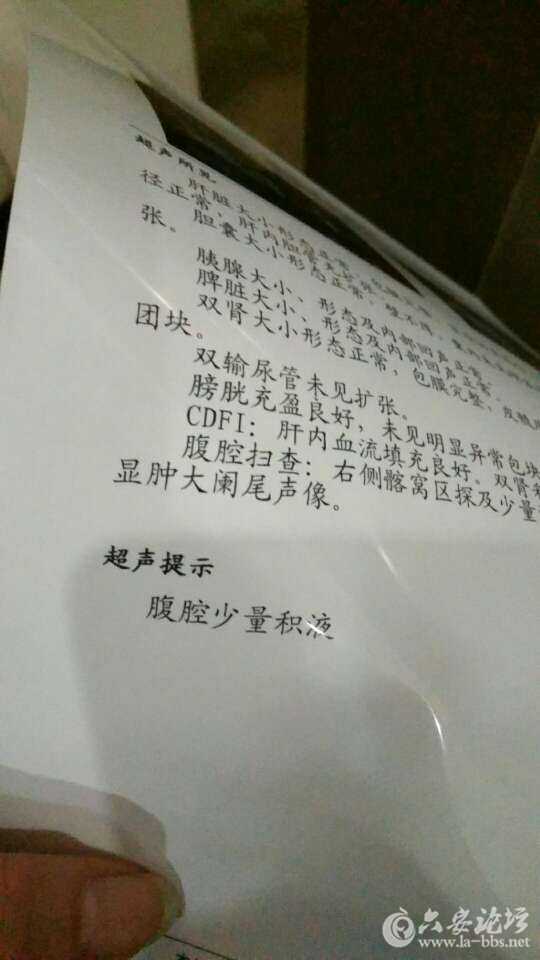 超声所见
肝脏大小形态正常，包膜
径正常，肝内胆管未扩张
胆囊大小形态正常，壁不厚，
张。
胰腺大小、形态及内部回声正常。
脾脏大小、形态及内部回声正常。
双肾大小形态正常，包膜完整，皮髓质
团块。
双输尿管未见扩张。
膀胱充盈良好，未见明显异常包块
CDFI：肝内血流填充良好。双肾
腹腔扫查：右侧髂窝区探及少量
显肿大阑尾声像。
超声提示
腹腔少量积液
六安论坛
www.la-bbs.net